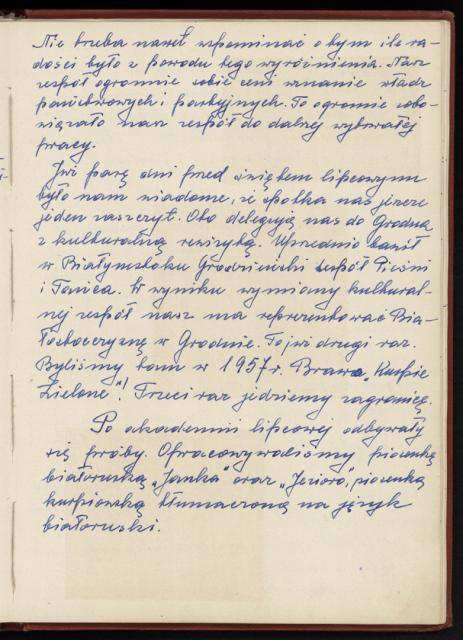 Nie trzeba nawet wspominać o tym ile ra-
dości było z powodu tego wyróżnienia. Nasz
zespół ogromnie sobie ceni uznanie władz
państwowych i partyjnych. To ogromnie zobo-
wiązało nasz zespół do dalszej wytrwałej
pracy.
Już parę dni przed świętem lipcowym
było nam wiadome, że spotka nas jeszcze
jeden zaszczyt. Oto delegują nas do Grodna
z kulturalną rewizytą. Uprzednio bawił
w Białymstoku Grodzieński Zespół Pieśni
i Tańca. W wyniku wymiany kultural-
nej zespół nasz ma reprezentować Bia-
łostocczyznę w Grodnie. To już drugi raz.
Byliśmy tam w 1957 r. Brawo „Kurpie
Zielone"! Trzeci raz jedziemy zagranicę.
Po akademii lipcowej odbywały
się próby. Opracowywaliśmy piosenkę
białoruską „Janka" oraz „Jezioro", piosenkę
kurpiowską tłumaczoną na język
białoruski.